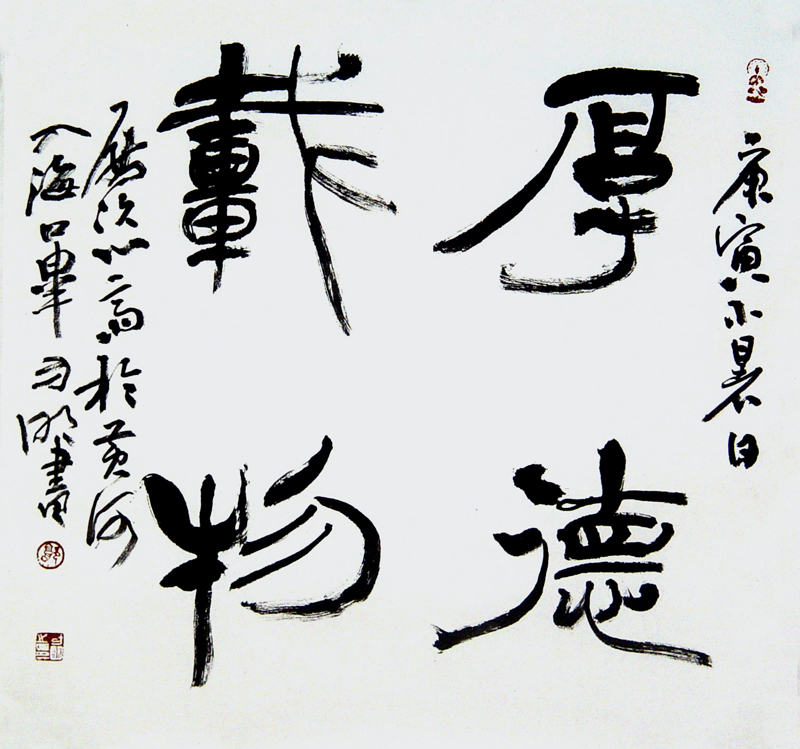 庚寅小暑日
厚德
載物
於黃河
入海口 明書